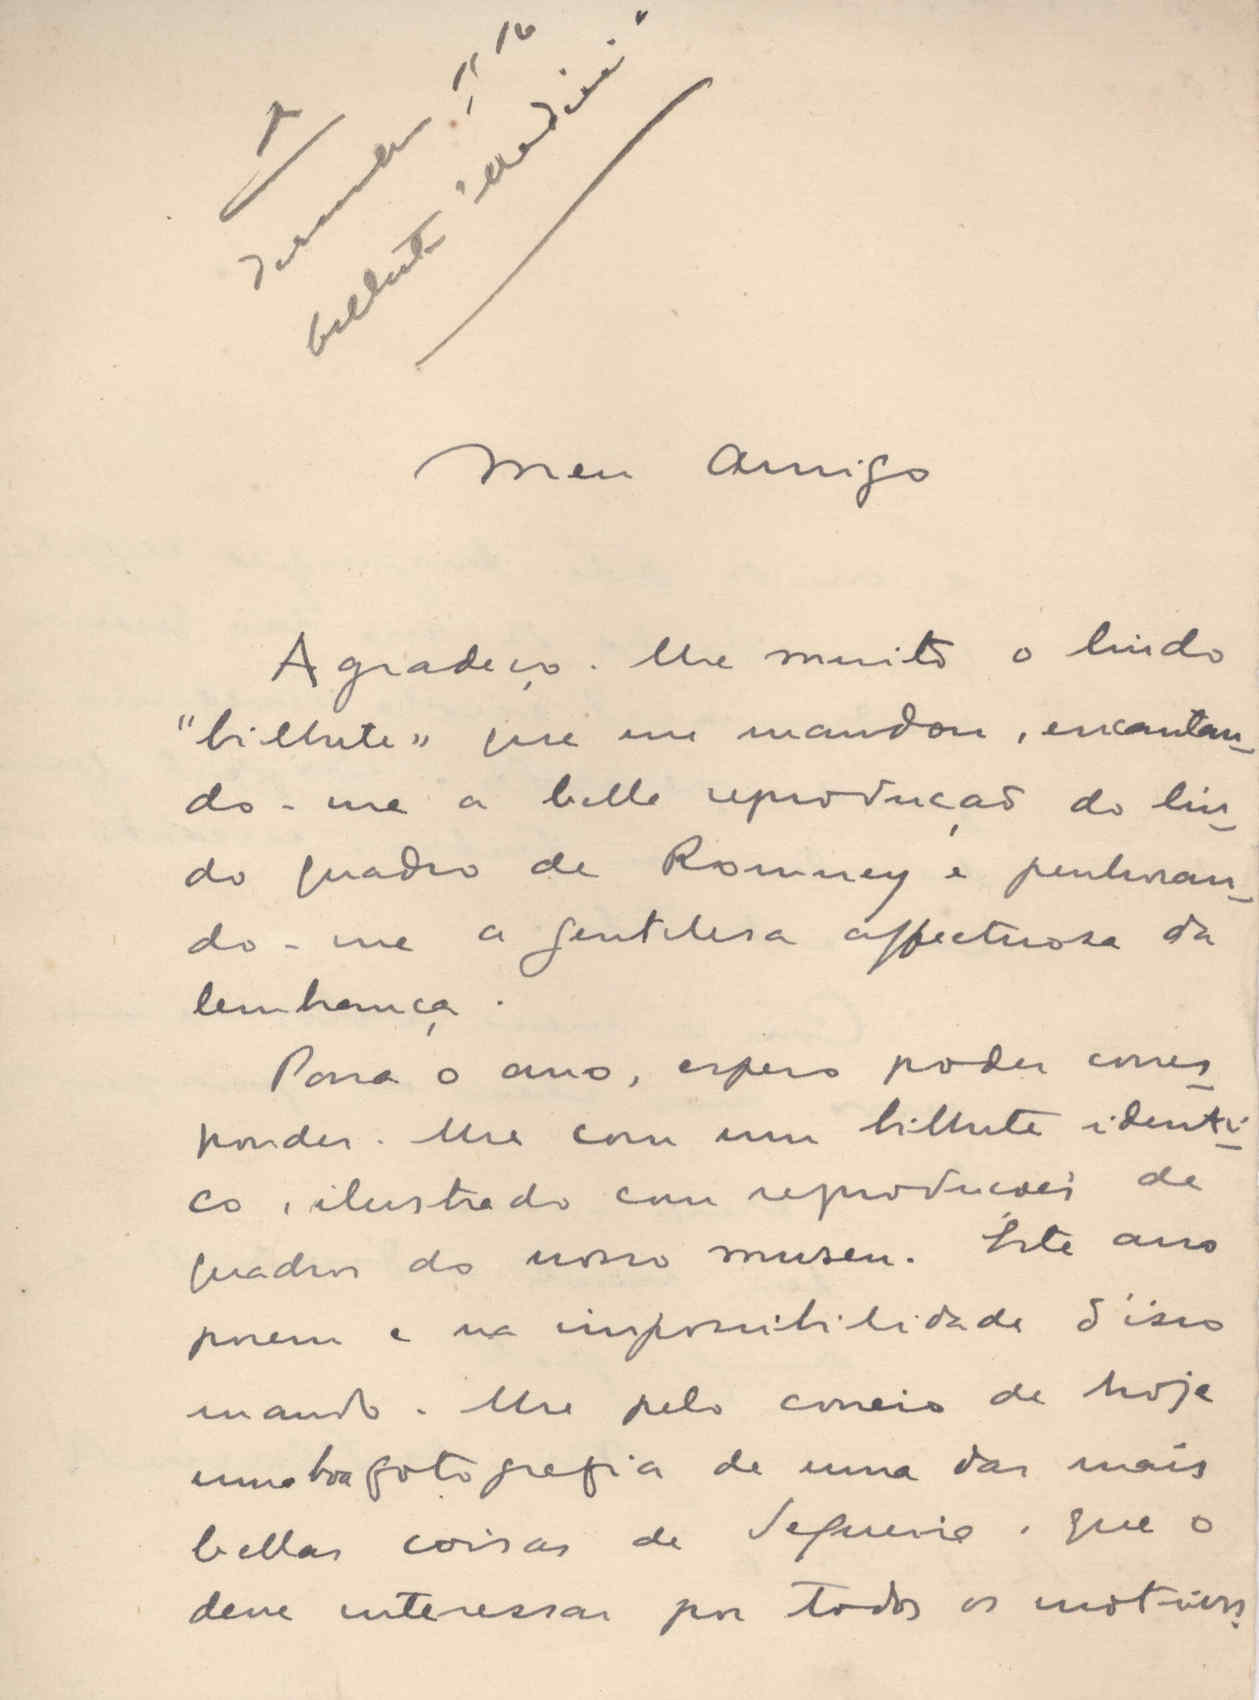 bilhete
Meu Amigo
Agradeço-lhe muito o lindo
"bilhete" que me mandou, encantan-
do-me a bella reprodução do lin-
do quadro de Romney e penhoran-
do-me a gentilesa affectuosa da
lembrança.
Para o ano, espero poder corres-
ponder-lhe com um bilhete identi-
co, ilustrado com reproducoes de
quadros do nosso museu. Este ano
porem e na impossibilidade d'isso
mando-lhe pelo correio de hoje
uma boa fotografia de uma das mais
bellas coisas de Sequeira, que o
deve interessar por todos os motivos.